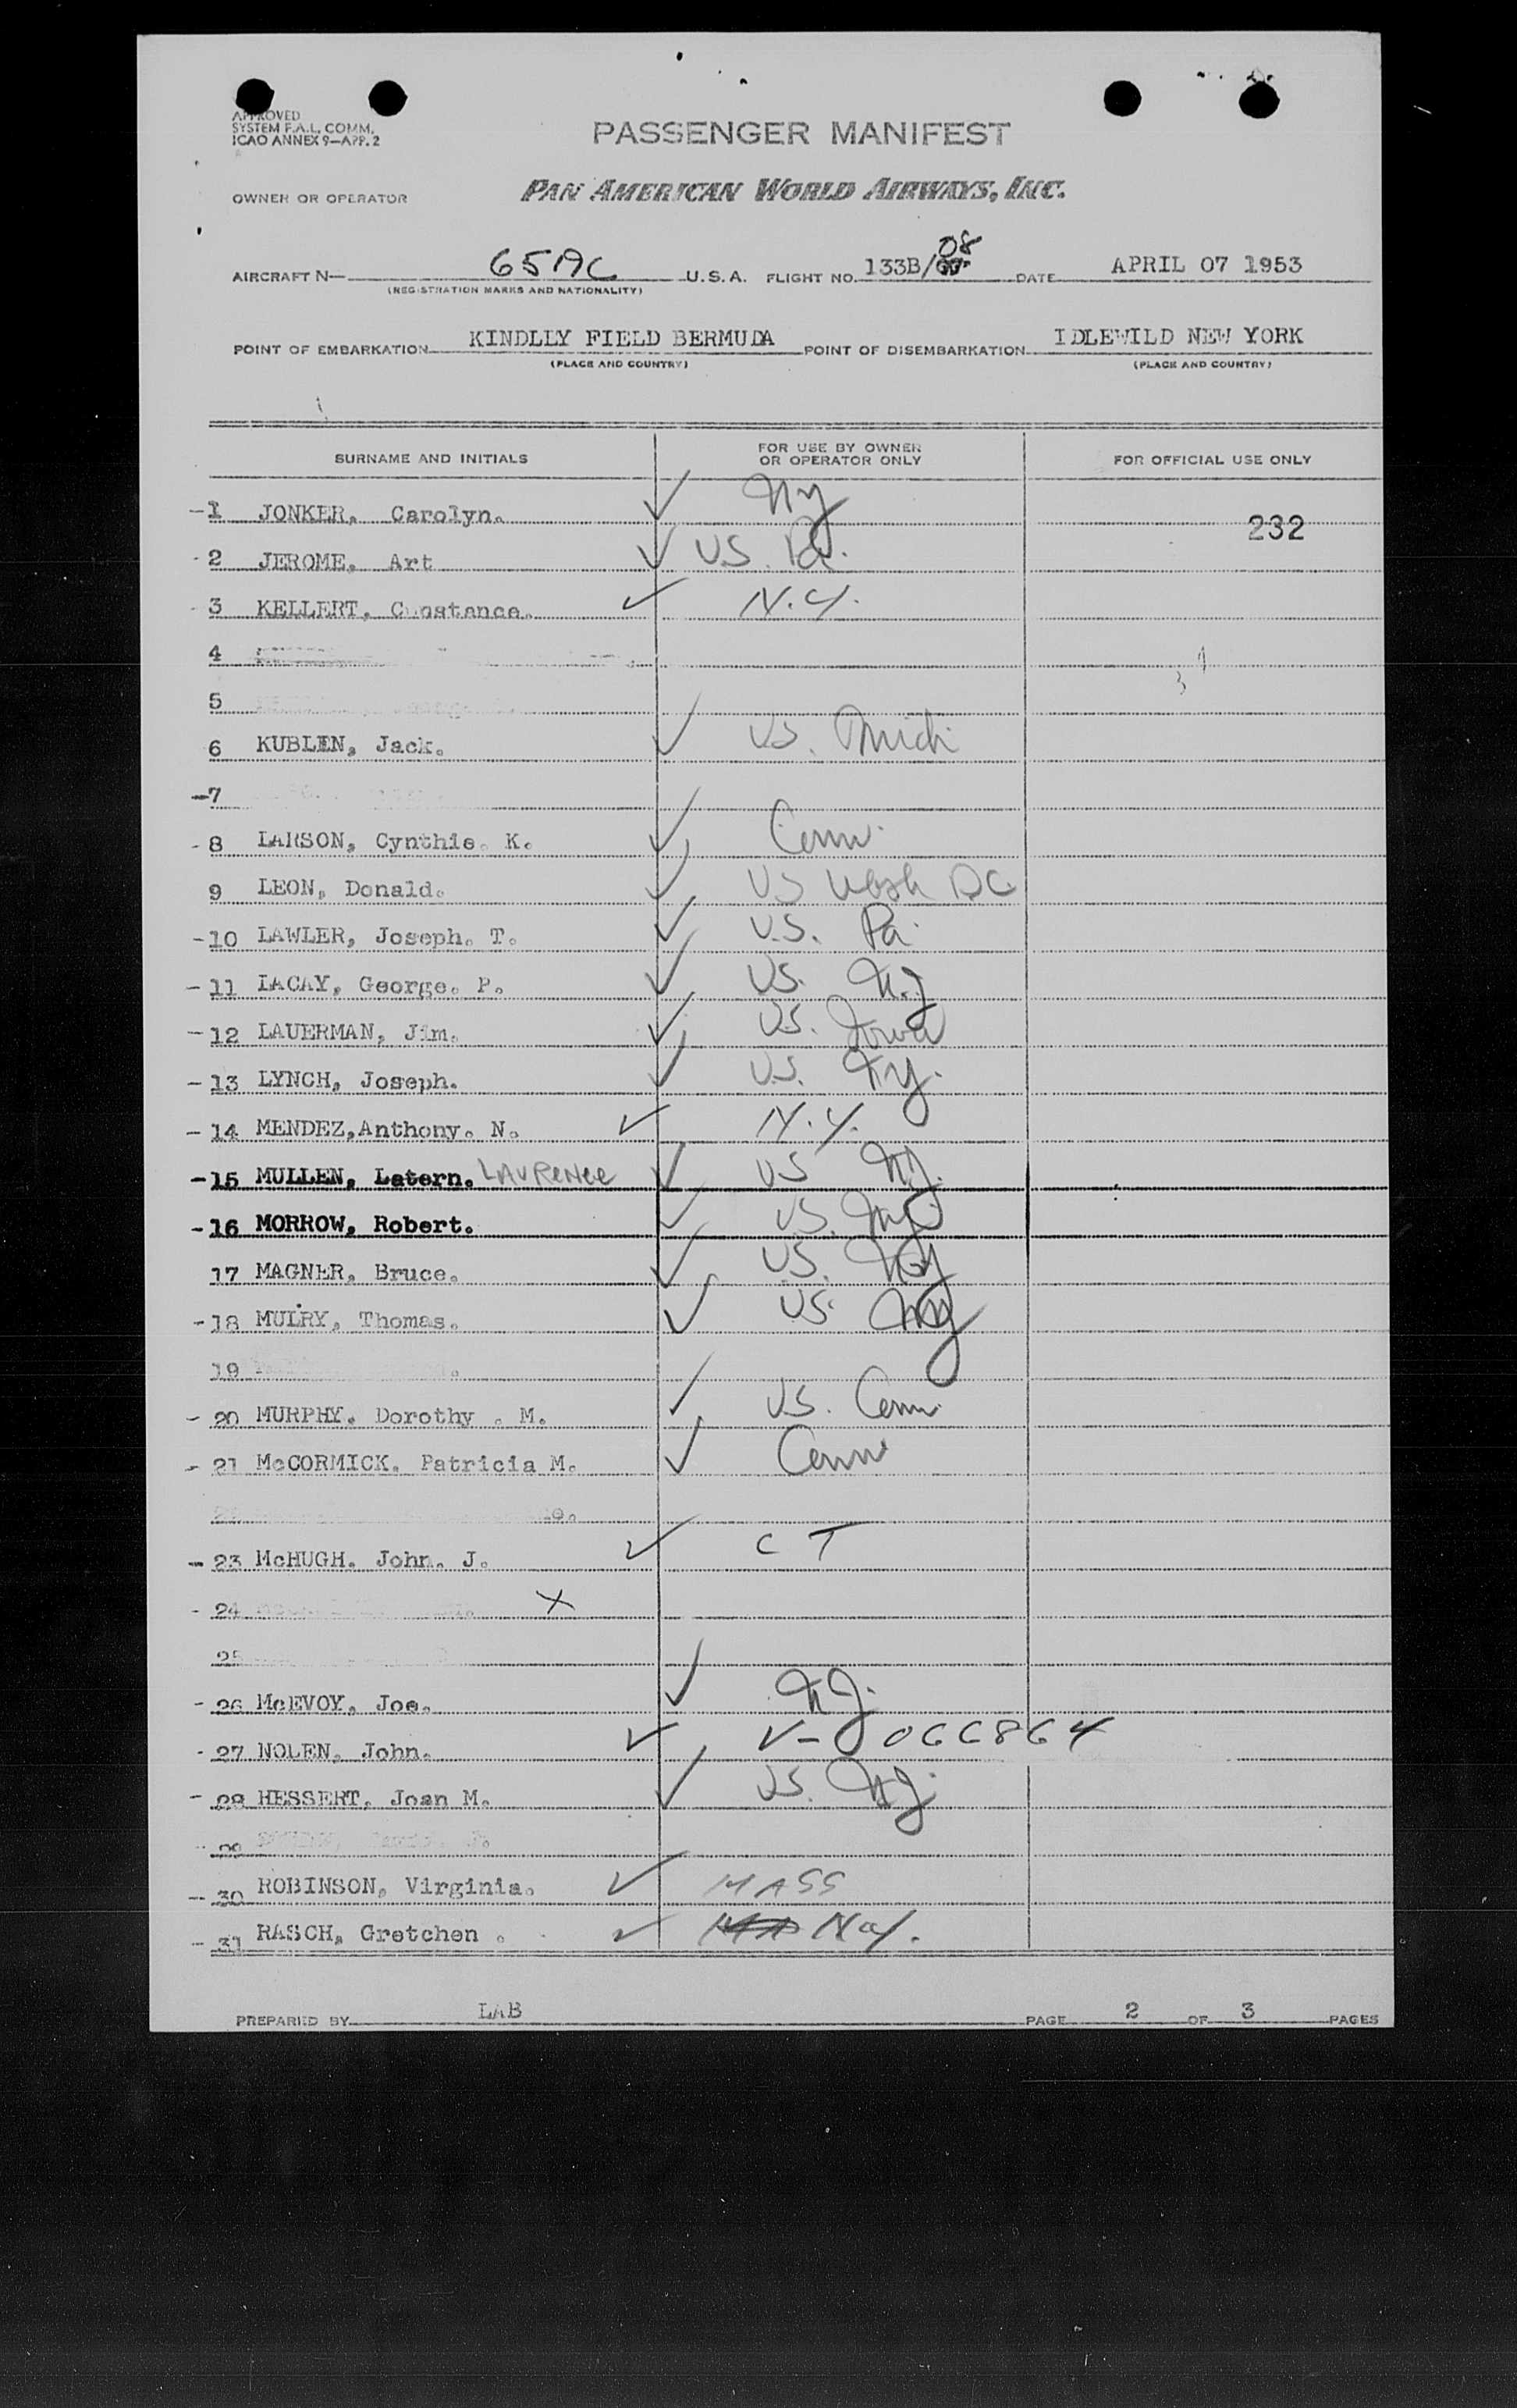 APPROVED
SYSTEM F.A.L. COMM.
ICAO ANNEX 9—APP. 2
PASSENGER MANIFEST
OWNER OR OPERATOR PAN AMERICAN WORLD AIRWAYS, INC.
AIRCRAFT N— 65AC U.S.A. FLIGHT NO. 133B/ 08 DATE APRIL 07 1953
(REGISTRATION MARKS AND NATIONALITY)
POINT OF EMBARKATION KINDLLY FIELD BERMUDA POINT OF DISEMBARKATION IDLEWILD NEW YORK
(PLACE AND COUNTRY) (PLACE AND COUNTRY)
SURNAME AND INITIALS FOR USE BY OWNER OR OPERATOR ONLY FOR OFFICIAL USE ONLY
-1 JONKER, Carolyn. ✓ NY 232
-2 JEROME, Art ✓ US. Pa.
-3 KELLERT, Constance. ✓ N.Y.
4
5
6 KUBLEN, Jack. ✓ US. Mich
-7
-8 LARSON, Cynthie. K. ✓ Conn.
9 LEON, Donald. ✓ US Wash DC
-10 LAWLER, Joseph. T. ✓ U.S. Pa.
-11 LACAY, George. P. ✓ US. N.J
-12 LAUERMAN, Jim. ✓ US. Iowa
-13 LYNCH, Joseph. ✓ U.S. NY.
-14 MENDEZ,Anthony. N. ✓ N.Y.
-15 MULLEN, Latern. LAURENCE ✓ US NJ.
-16 MORROW, Robert. ✓ US.
17 MAGNER, Bruce. ✓ US. NY
-18 MULRY, Thomas. ✓ US. NY
19
-20 MURPHY. Dorothy . M. ✓ US. Conn.
-21 McCORMICK. Patricia M. ✓ Conn
-23 McHUGH. John. J. ✓ CT
-24 X
25
-26 McEVOY, Joe. ✓ NJ.
-27 NOLEN, John. ✓ V-0066864
-28 HESSERT, Joan M. ✓ US. NJ.
29
-30 ROBINSON, Virginia. ✓ MASS
-31 RASCH, Gretchen . ✓ N.Y.
PREPARED BY LAB PAGE 2 OF 3 PAGES